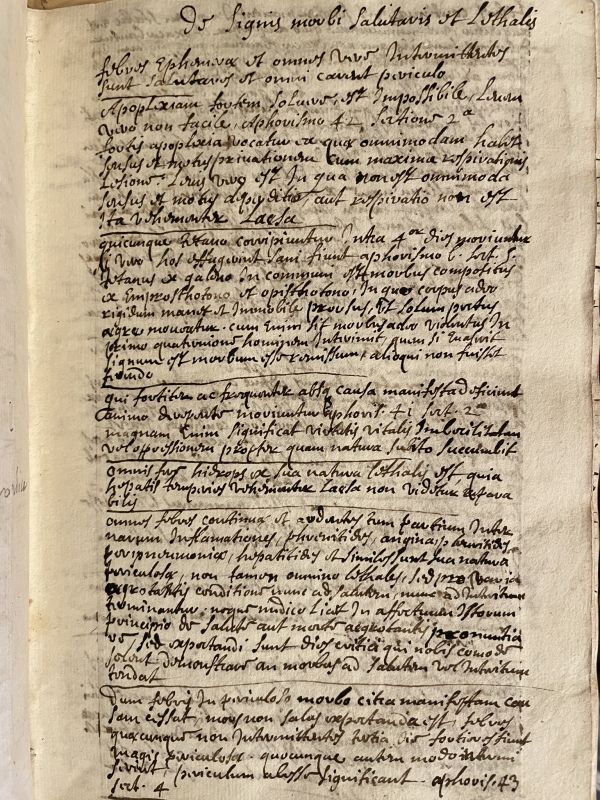 De Signis morbi salutaris et Lethalis
febres Ephemeræ et omnes vere Intermittentes
sunt salutares et omni carent periculo
Apoplexiam fortem solvere, est Impossibile, Levem
vero non facile, Aphorismo 42 sectione 2ª
fortis apoplexia vocatur ea quæ omnimodam habet
sensus et motus privationem cum maxima respirationis
Lesione. Levis vero est In qua non est omnimoda
sensus et motus deperditio, aut respiratio non est
Ita vehementer Laesa
quicunque tetano corripiuntur Intra 4or dies moriuntur
si vero hos effugerint sani fiunt aphorismo 6. sect. 5.
tetanus ex galeno In communi est morbus compositus
ex Emprosthotono et opisthotono, In quo corpus adeo
rigidum manet et Immobile prorsus, et solum pectus
aegre moveatur. cum Enim sit morbus adeo violentus In
primo quaternione hominem Interimit, quem si Evaserit
signum est morbum esse remissum, alioqui non fuisset
qui fortiter ac frequenter absq causa manifesta deficiunt
animo derepente moriuntur aphoris. 41 sect. 2ª
magnam Enim significat virtutis vitalis Imbecillitatem
vel oppressionem propter quam natura subito succumbit
omnis hidrops ex sua natura lethalis est, quia
hepatis temperies vehementer Laesa non videtur repara
bilis
omnes febres continuæ et ardentes tum partium Inter
narum Inflammationes, phrenitides, angina, pleuritides,
peripneumonica, hepatitides et similes sunt sua natura
periculosæ, non tamen omnino lethales, sed pro varia
aegrotantis conditione nunc ad salutem, nunc ad Interitum
terminantur. neque medico licet In affectuum Istorum
principio de salute aut morte aegrotantis pronuntia
re sed expectandi sunt dies critici qui nobis
solent demonstrare an morbus ad salutem vel Interitum
tendat
Dum febris In periculoso morbo citra manifestam cau
sam cessat, mors non salus expectanda est, febres
quæcunque non Intermittentes tertia die fortiores fiunt
magis periculosæ. quocunque autem modo intermi
serint, periculum abesse significant. aphoris. 43
sect. 4